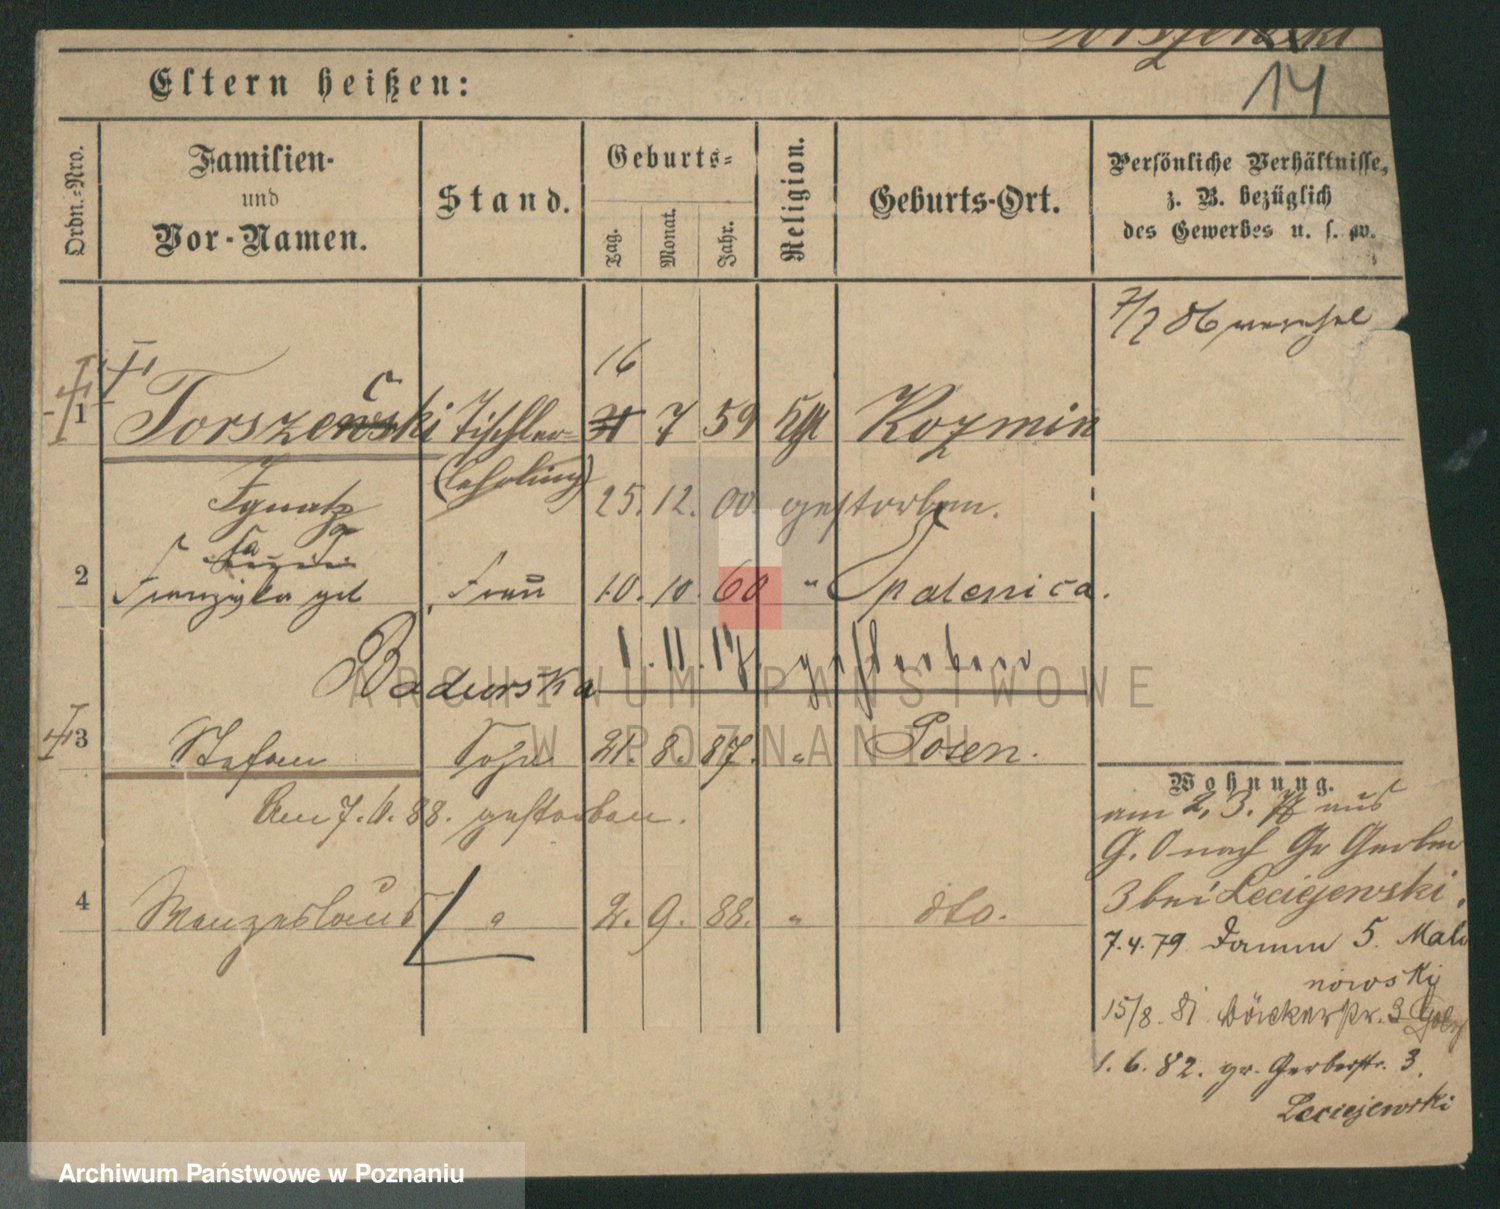 14
Eltern heißen:
Ordn.=Nro.
Familien-
und
Vor-Namen.
Stand.
Geburts=
Tag.
Monat.
Jahr.
Religion.
Geburts-Ort.
Persönliche Verhältnisse,
z. B. bezüglich
des Gewerbes u. s. w.
7/7 86
16
1 Torszewski Tischler= 7 59 Kth Kozmin
(Lehrling)
Ignatz 25. 12. 00. gestorben.
2 Franziska geb Frau 10. 10. 60 " Opalenica.
1. 11. gestorben
Badurska
3 Stefan Sohn 21. 8. 87. " Posen.
Am 7. 88. gestorben.
4 Wenzeslaus 2. 9. 88. " dto.
Wohnung.
am 2. 3. aus
G. O nach Gr Gerber
3 bei Leciejewski.
7.4.79 Damm 5. Mali
nowski
15/8. 81 Bäckerstr. 3
1. 6. 82. gr. Gerberstr. 3.
Leciejewski
ARCHIWUM PAŃSTWOWE
W POZNANIU
Archiwum Państwowe w Poznaniu